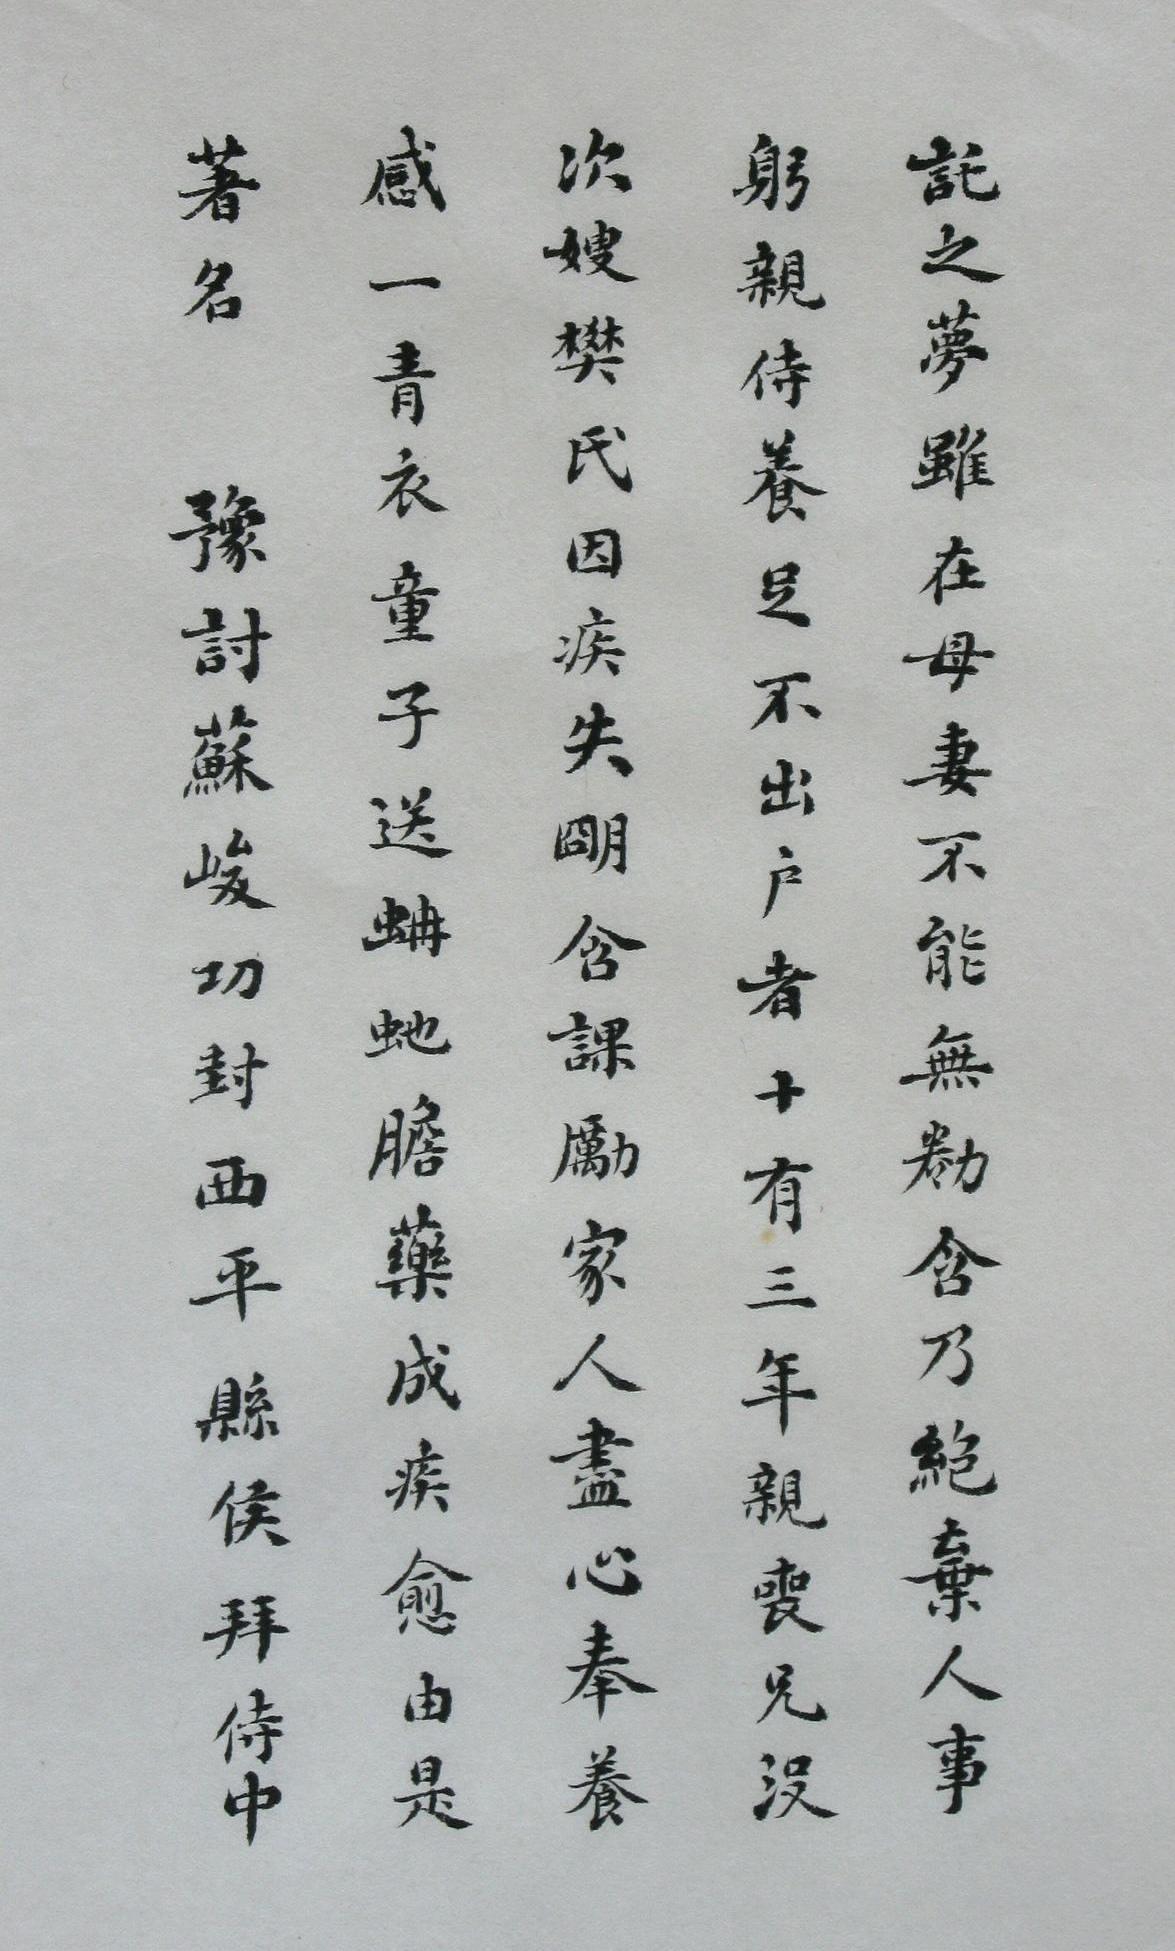 託之夢雖在母妻不能無勌含乃絶棄人事
躬親侍養足不出户者十有三年親喪兄没
次嫂樊氏因疾失朙含課勵家人盡心奉養
感一青衣童子送蚺虵膽藥成疾愈由是
著名　豫討蘇峻功封西平縣侯拜侍中